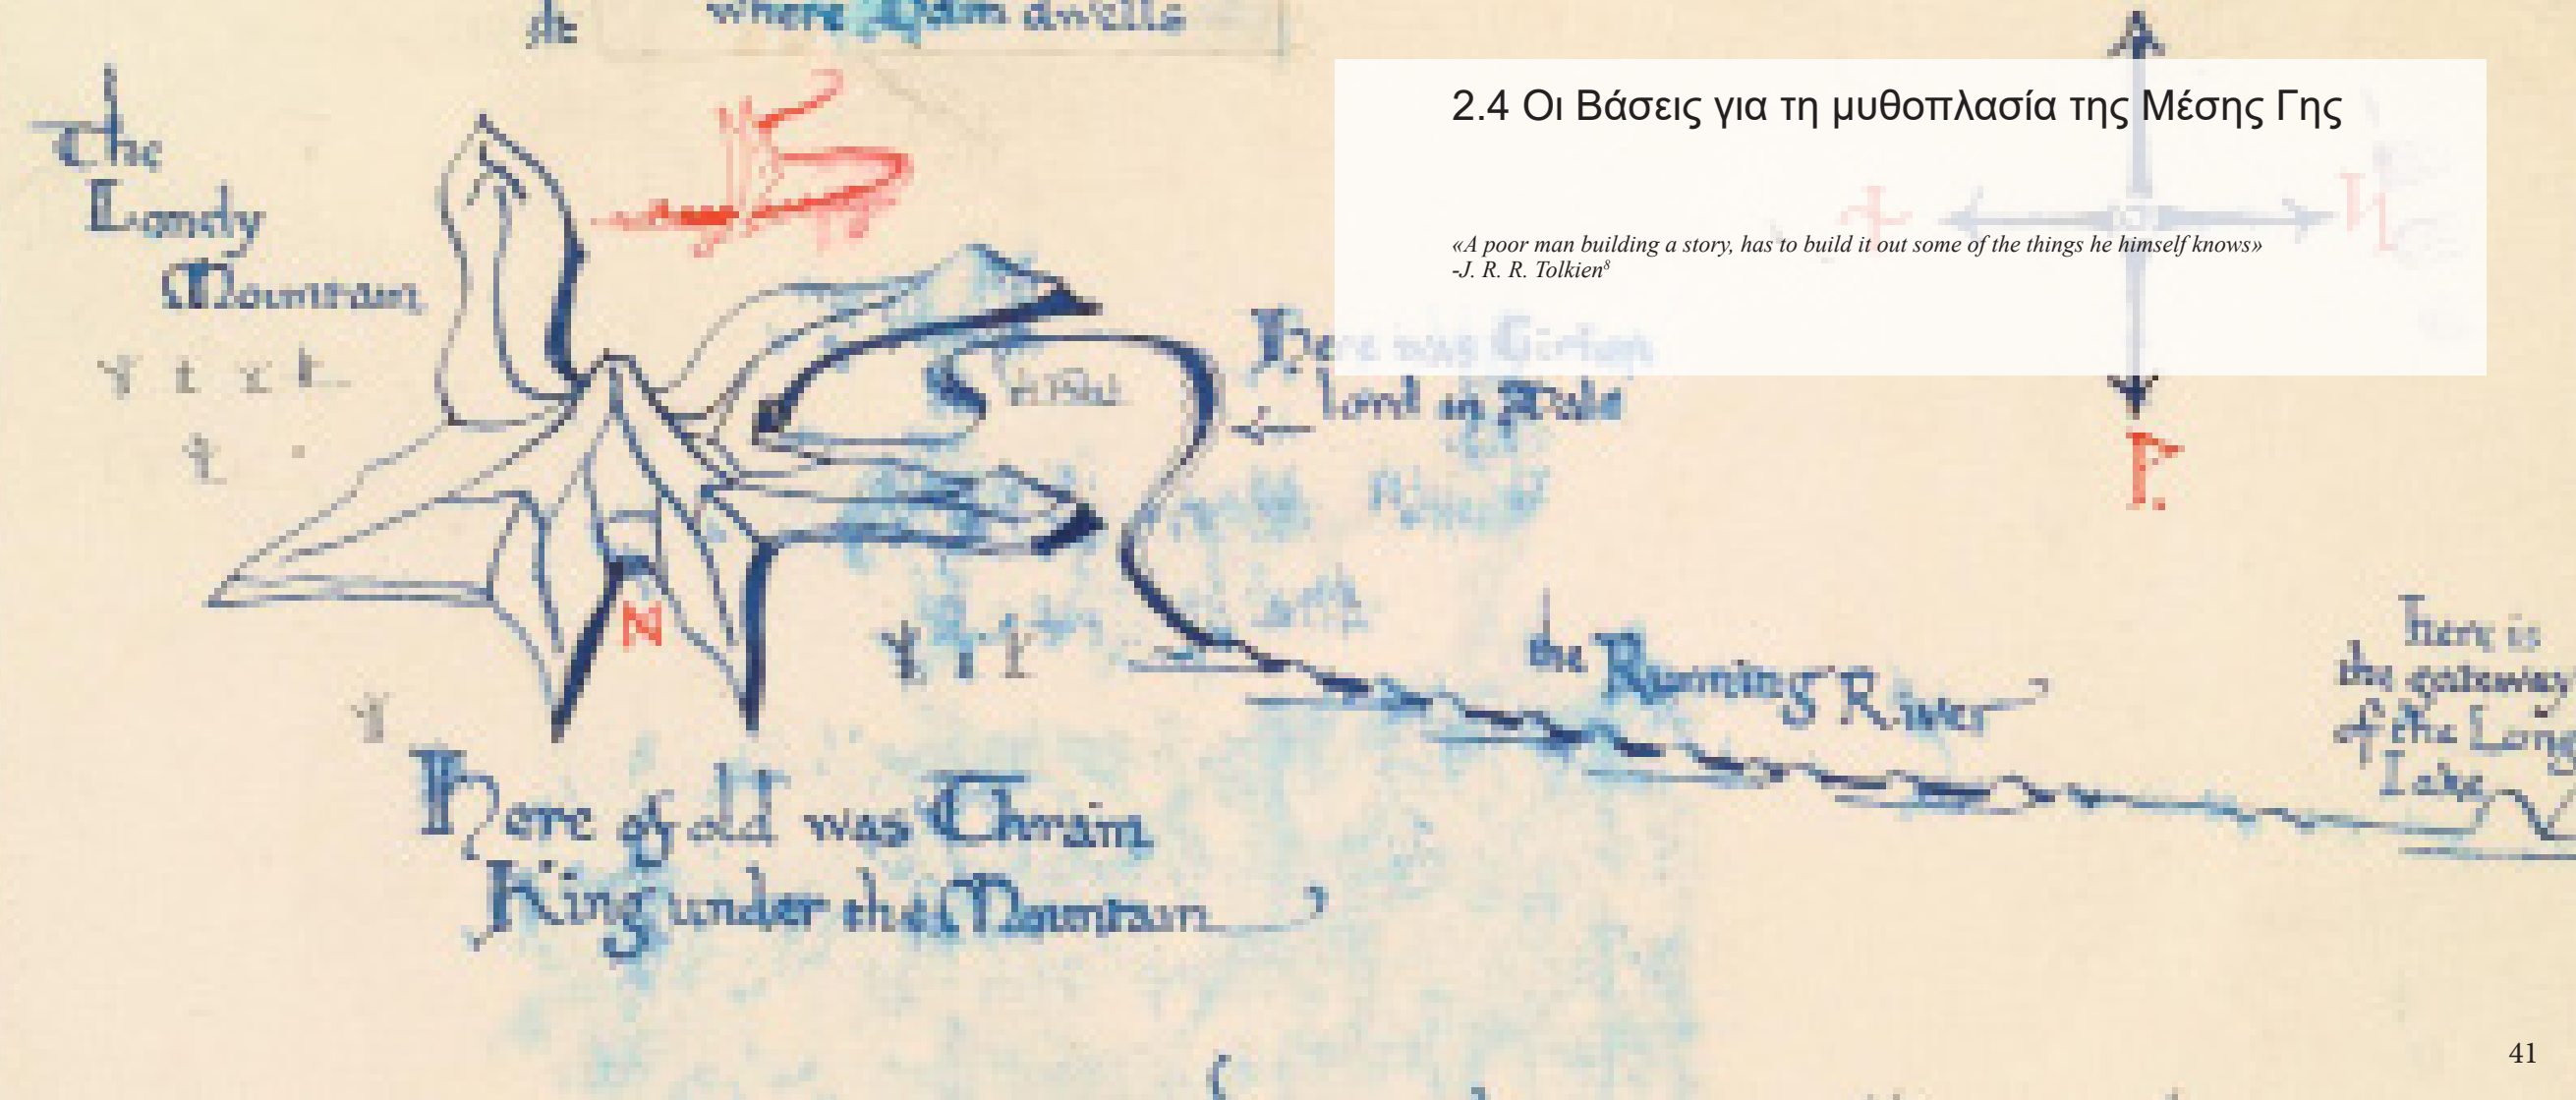 where dwells
The
Londy
Mountain
2.4 Οι Βάσεις για τη μυθοπλασία της Μέσης Γης
«A poor man building a story, has to build it out some of the things he himself knows»
-J. R. R. Tolkien⁸
Here was Girion
Lord in Dale
the Running River
There is
the gateway
of the Long
Lake
Here of old was Thrain
King under the Mountain
41